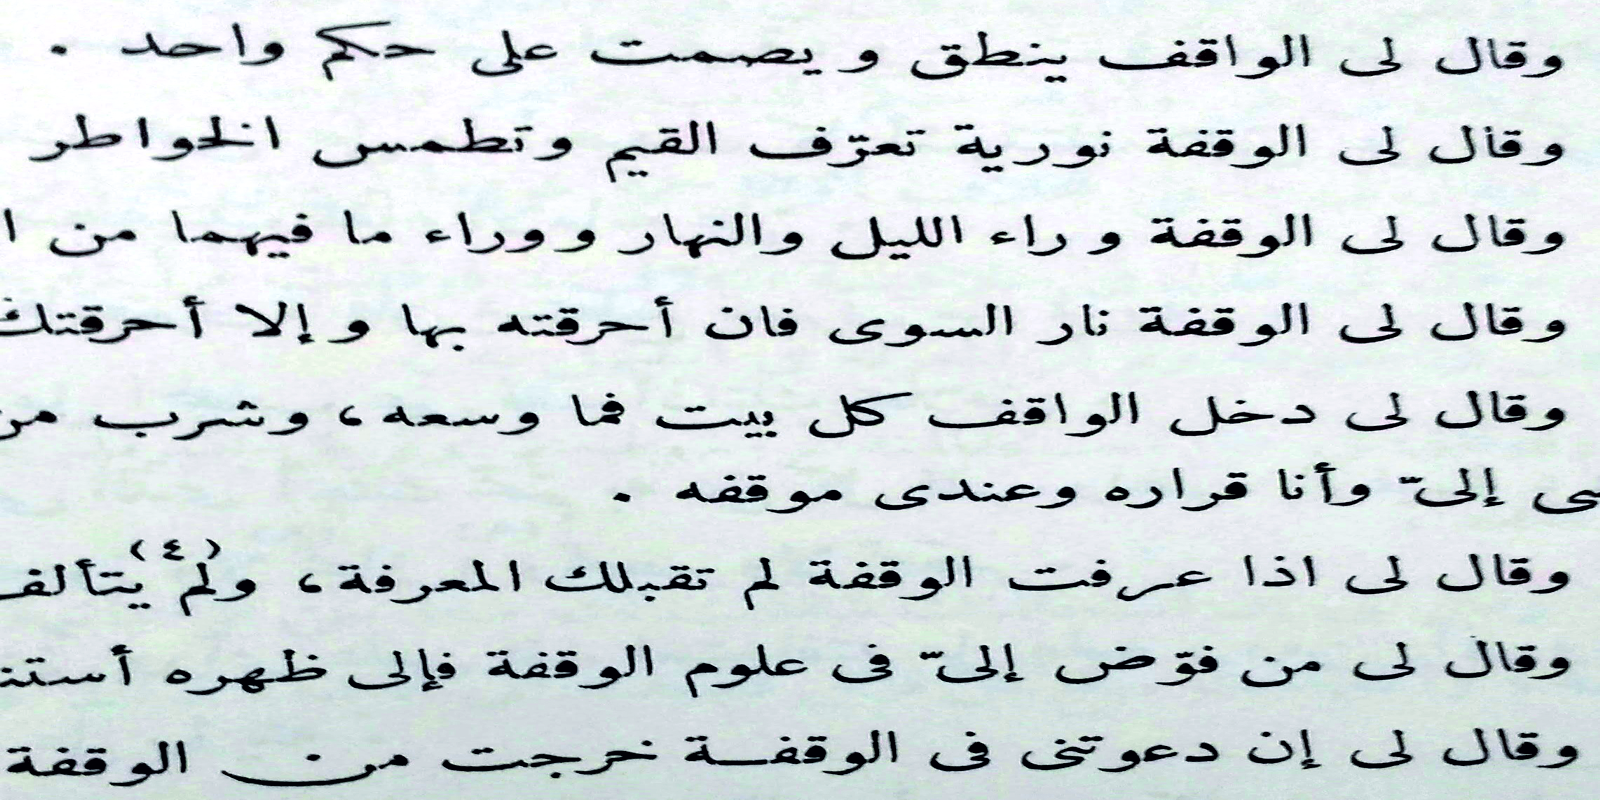 وقال لى الواقف ينطق و يصمت على حكم واحد .
وقال لى الوقفة نورية تعرّف القيم وتطمس الخواطر
وقال لى الوقفة و راء الليل والنهار ووراء ما فيهما من
وقال لى الوقفة نار السوى فان أحرقته بها و إلا أحرقتك
وقال لى دخل الواقف كل بيت فما وسعه ، وشرب من
إلىّ وأنا قراره وعندى موقفه .
وقال لى اذا عرفت الوقفة لم تقبلك المعرفة ، ولم (٤) يتألف
وقال لى من فوّض إلىّ فى علوم الوقفة فإلى ظهره
وقال لى إن دعوتنى فى الوقفة خرجت من الوقفة